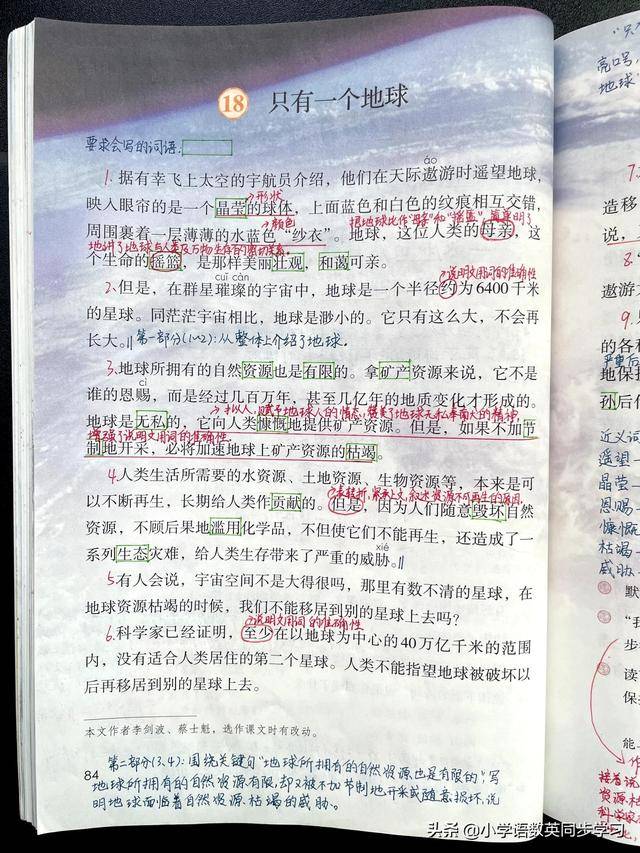 18 只有一个地球
要求会写的词语:
áo
1. 据有幸飞上太空的宇航员介绍，他们在天际遨游时遥望地球，
→形状
映入眼帘的是一个晶莹的球体，上面蓝色和白色的纹痕相互交错，
→颜色
把地球比作“母亲”和“摇篮”，
周围裹着一层薄薄的水蓝色“纱衣”。地球，这位人类的母亲，这
个生命的摇篮，是那样美丽壮观，和蔼可亲。
cuǐ càn
→说明文用词的准确性
2. 但是，在群星璀璨的宇宙中，地球是一个半径约为6400千米
的星球。同茫茫宇宙相比，地球是渺小的。它只有这么大，不会再
长大。‖第一部分(1-2):从整体上介绍了地球.
3. 地球所拥有的自然资源也是有限的。拿矿产资源来说，它不是
cì
谁的恩赐，而是经过几百万年，甚至几亿年的地质变化才形成的。
→拟人，赋予地球人的情态，赞美了地球无私奉献的精神，
地球是无私的，它向人类慷慨地提供矿产资源。但是，如果不加节
增强了说明文用词的准确性
制地开采，必将加速地球上矿产资源的枯竭。
4. 人类生活所需要的水资源、土地资源、生物资源等，本来是可
以不断再生，长期给人类作贡献的。但是，因为人们随意毁坏自然
资源，不顾后果地滥用化学品，不但使它们不能再生，还造成了一
xié
系列生态灾难，给人类生存带来了严重的威胁。‖
5. 有人会说，宇宙空间不是大得很吗，那里有数不清的星球，在
地球资源枯竭的时候，我们不能移居到别的星球上去吗？
→说明文用词的准确性
6. 科学家已经证明，至少在以地球为中心的40万亿千米的范围
内，没有适合人类居住的第二个星球。人类不能指望地球被破坏以
后再移居到别的星球上去。
本文作者李剑波、蔡士魁，选作课文时有改动。
第二部分(3、4):围绕关键句“地球所拥有的自然资源也是有限的”，写
84
地球所拥有的自然资源有限，却又被不加节制地开采或随意损坏，说
明地球面临着自然资源枯竭的威胁。
亮口号，
地球”
7.
造移
说，
8.
遨游
9.
的各种
地保护
孙后代
近义词
遥望—
晶莹—
恩赐—
慷慨—
枯竭—
威胁—
默
“我
步
读
保
能
接着说
资源
科学家
头条 @小学语数英同步学习